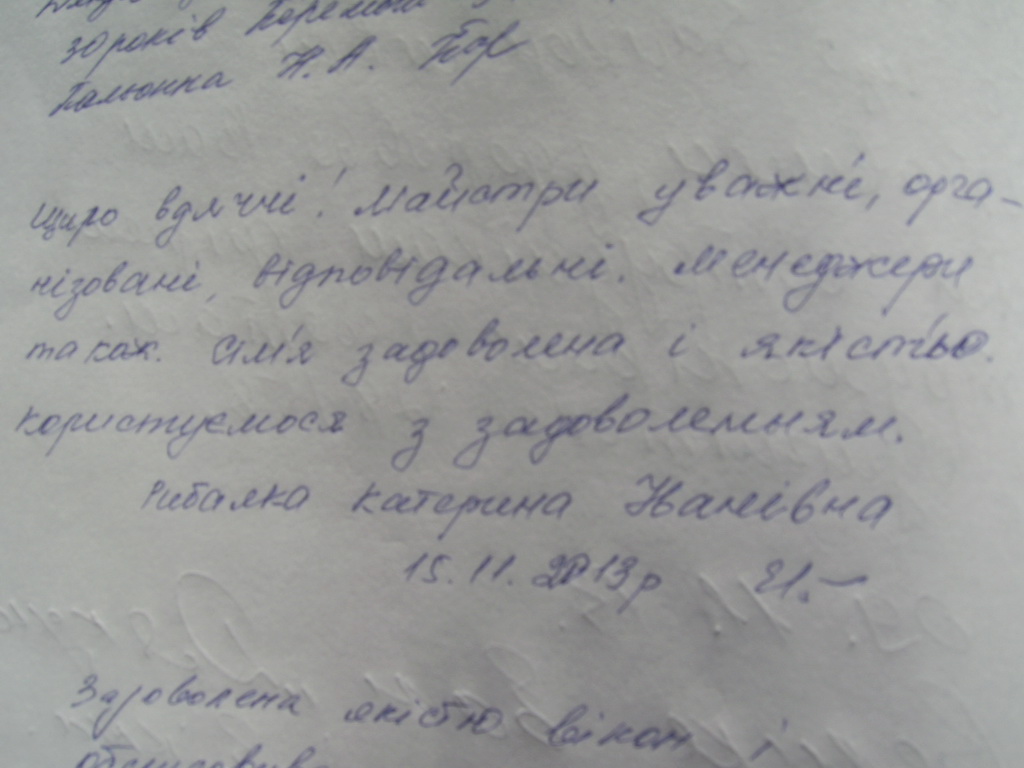 30 років
Н. А.
Щиро вдячні! Майстри уважні, орга-
нізовані, відповідальні. Менеджери
також. Сім'я задоволена і якістью.
Користуємося з задоволенням.
Рибалка Катерина Іванівна
15.11.2013р
Задоволена якістю вікон і